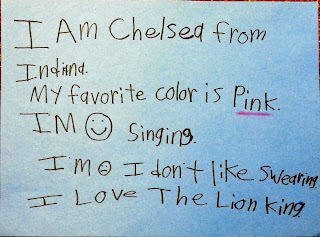 I Am Chelsea from
Indiana.
My favorite color is Pink.
IM ☺ Singing.
I'm ☹ I don't like Swearing.
I Love The Lion King.